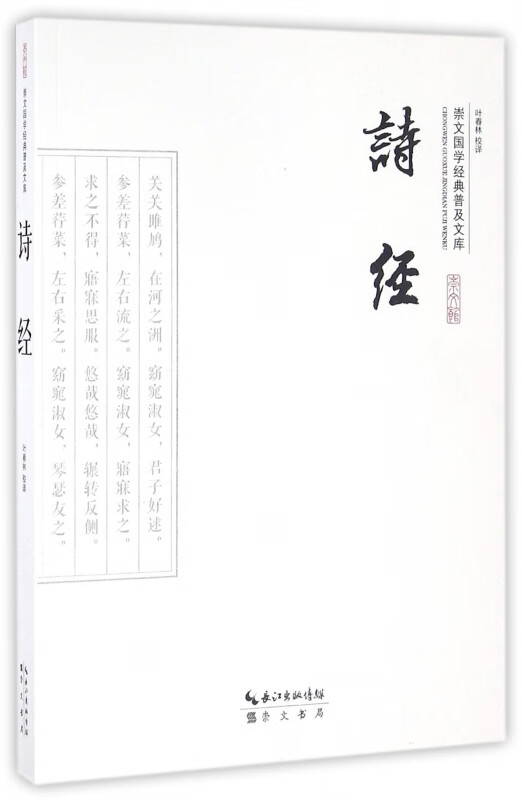 叶春林 校译
崇文国学经典普及文库
CHONGWEN GUOXUE JINGDIAN PUJI WENKU
詩經
崇文館
关关雎鸠，在河之洲。窈窕淑女，君子好逑。
参差荇菜，左右流之。窈窕淑女，寤寐求之。
求之不得，寤寐思服。悠哉悠哉，辗转反侧。
参差荇菜，左右采之。窈窕淑女，琴瑟友之。
长江出版传媒
崇文书局
崇文館
崇文国学经典普及文库
诗经
叶春林 校译
长江出版传媒
崇文书局